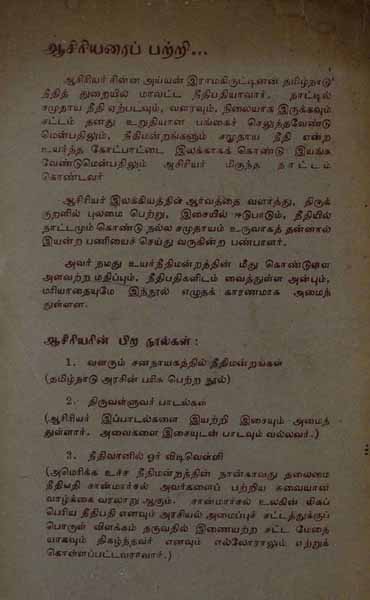 ஆசிரியரைப் பற்றி...
ஆசிரியர் சின்ன அய்யன் இராமகிருட்டினன் தமிழ்நாடு
நீதித் துறையில் மாவட்ட நீதிபதியாவார். நாட்டில்
சமுதாய நீதி ஏற்படவும், வளரவும், நிலையாக இருக்கவும்
சட்டம் தனது உறுதியான பங்கைச் செலுத்தவேண்டு
மென்பதிலும், நீதிமன்றங்களும் சமுதாய நீதி என்ற
உயர்ந்த கோட்பாட்டை இலக்காகக் கொண்டு இயங்க
வேண்டுமென்பதிலும் ஆசிரியர் மிகுந்த நாட்டம்
கொண்டவர்
ஆசிரியர் இலக்கியத்தின் ஆர்வத்தை வளர்த்து, திருக்
குறளில் புலமை பெற்று, இசையில் ஈடுபாடும், நீதியில்
நாட்டமும் கொண்டு நல்ல சமுதாயம் உருவாகத் தன்னால்
இயன்ற பணியைச் செய்து வருகின்ற பண்பாளர்.
அவர் நமது உயர்நீதிமன்றத்தின் மீது கொண்டுள்ள
அளவற்ற மதிப்பும், நீதிபதிகளிடம் வைத்துள்ள அன்பும்,
மரியாதையுமே இந்நூல் எழுதக் காரணமாக அமைந்
துள்ளன.
ஆசிரியரின் பிற நூல்கள் :
1. வளரும் சனநாயகத்தில் நீதிமன்றங்கள்
(தமிழ்நாடு அரசின் பரிசு பெற்ற நூல்)
2. திருவள்ளுவர் பாடல்கள்
(ஆசிரியர் இப்பாடல்களை இயற்றி இசையும் அமைத்
துள்ளார். அவைகளை இசையுடன் பாடவும் வல்லவர்.)
3. நீதிவானில் ஓர் விடிவெள்ளி
(அமெரிக்க உச்ச நீதிமன்றத்தின் நான்காவது தலைமை
நீதிபதி சான்மார்சல் அவர்களைப் பற்றிய சுவையான
வாழ்க்கை வரலாறு ஆகும். சான்மார்சல் உலகின் மிகப்
பெரிய நீதிபதி எனவும் அரசியல் அமைப்புச் சட்டத்துக்குப்
பொருள் விளக்கம் தருவதில் இணையற்ற சட்ட மேதை
யாகவும் திகழ்ந்தவர் எனவும் எல்லோராலும் ஏற்றுக்
கொள்ளப்பட்டவராவார்.)